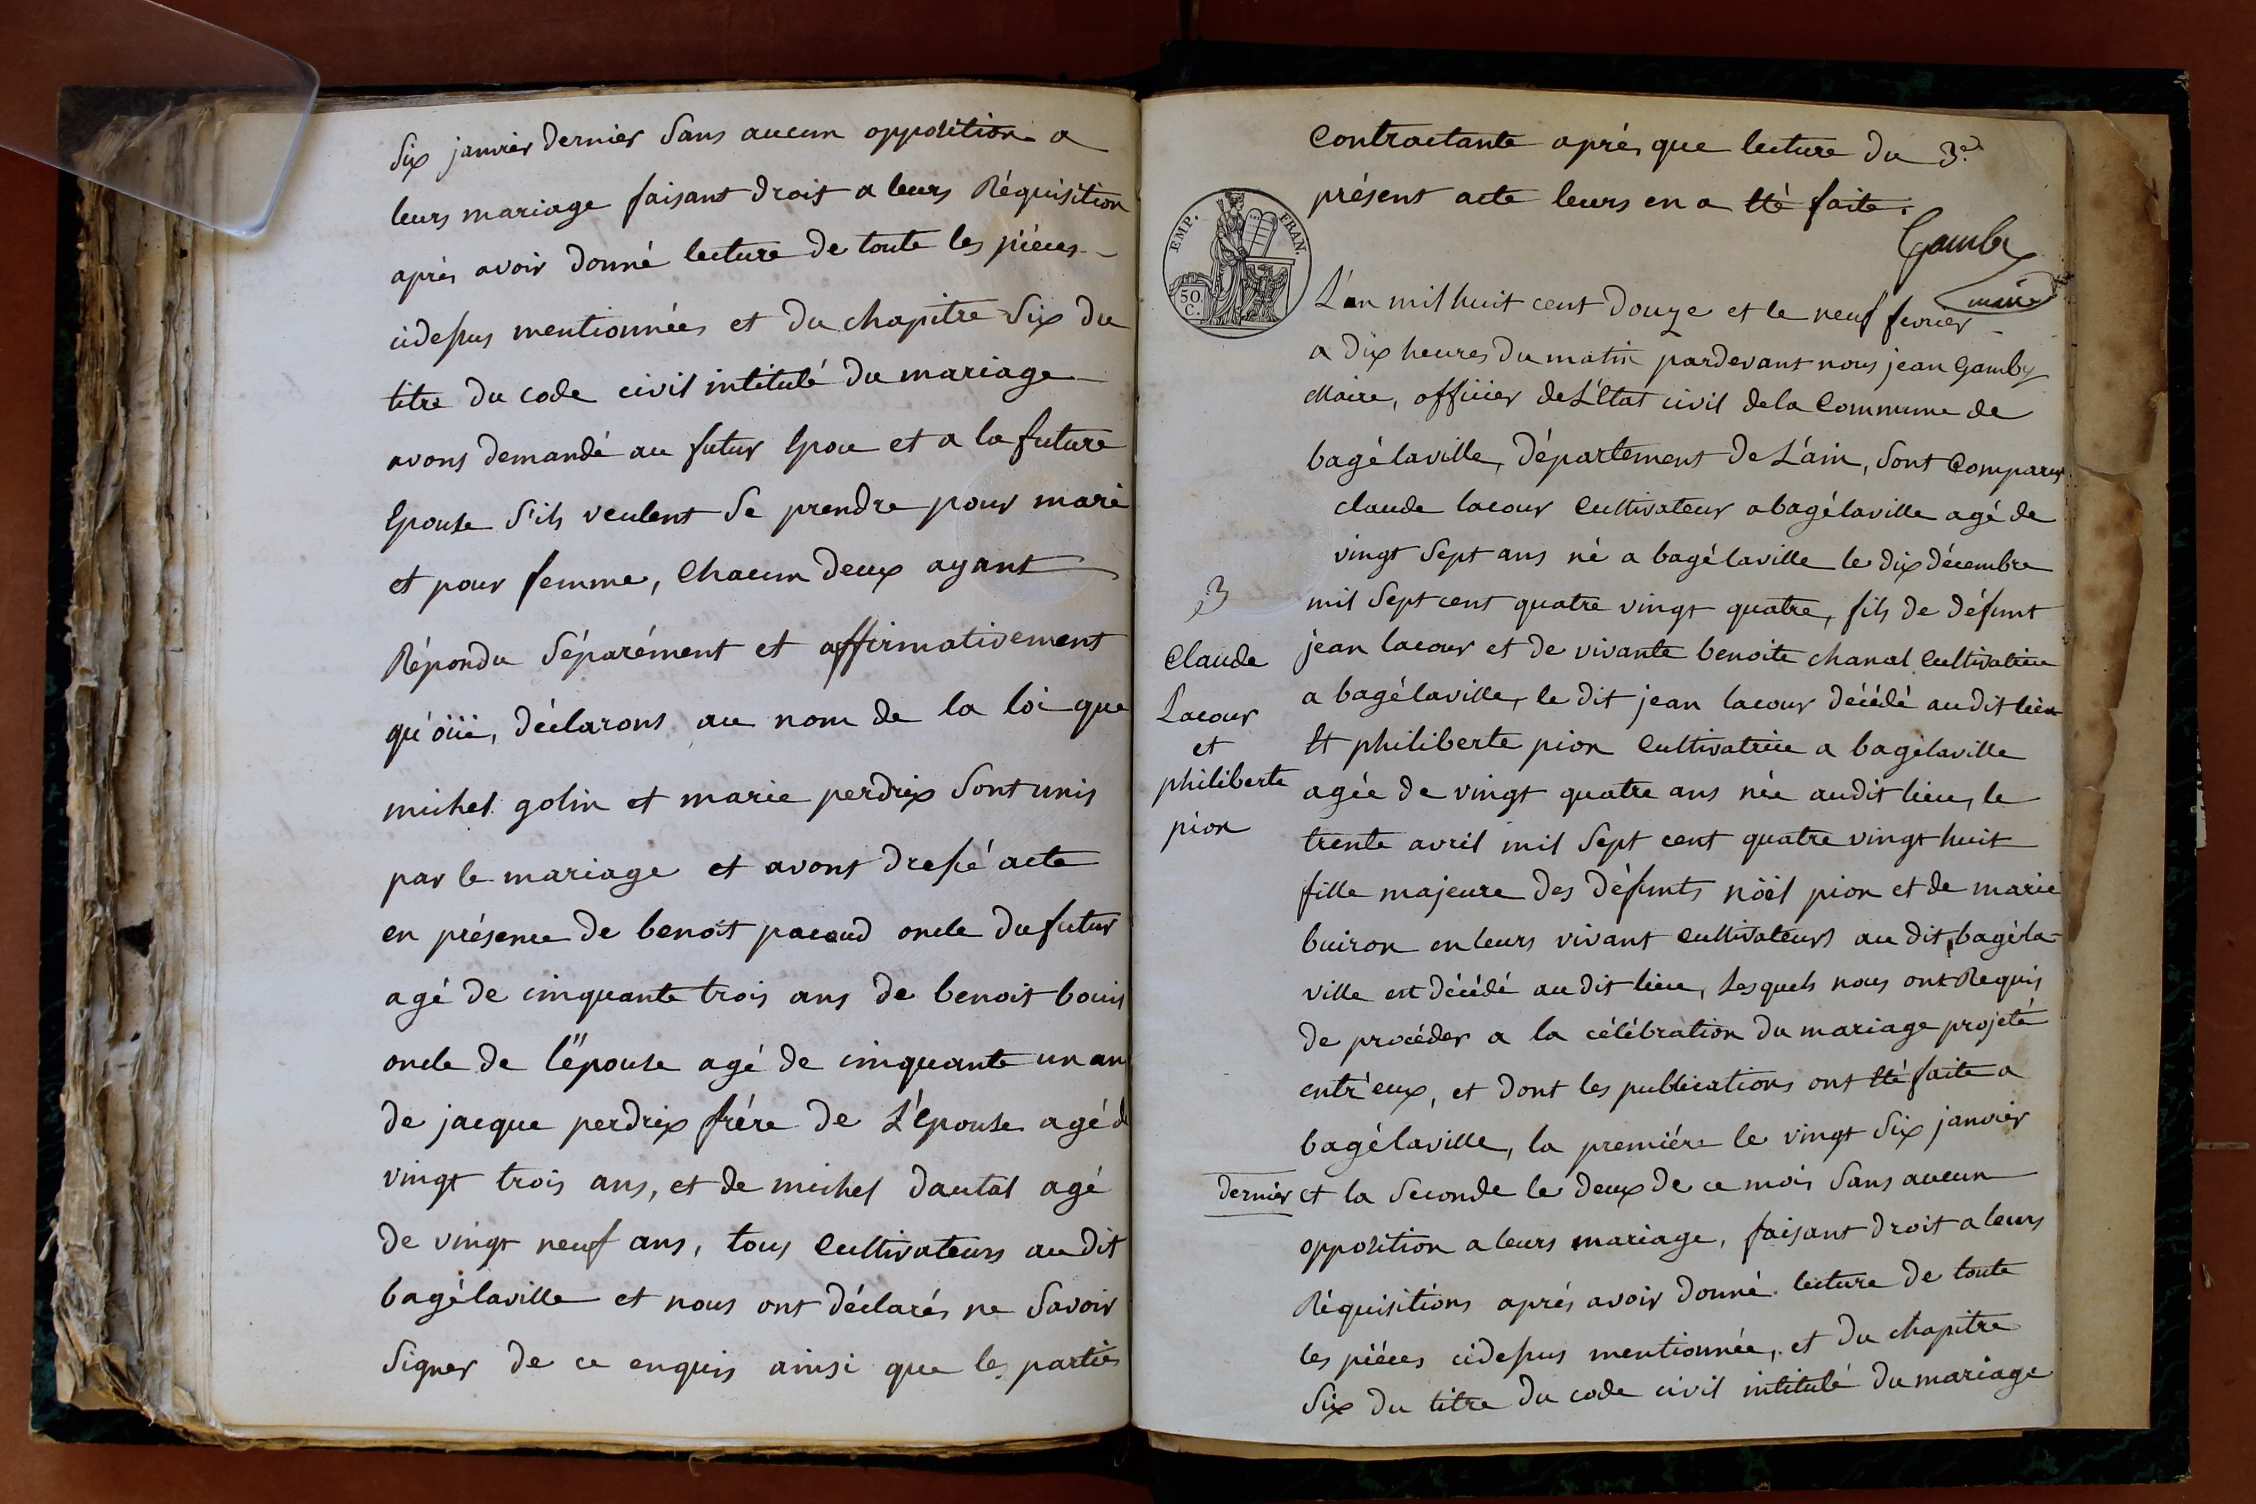 Six janvier dernier Sans aucun opposition a
leurs mariage faisant droit a leurs Réquisition
après avoir donné lecture de toute les piéces
cidessus mentionnées et du chapitre Six du
titre du code civil intitulé du mariage
avons demandé au futur Epou et a la future
Epouse S'ils veulent Se prendre pour mari
et pour femme, Chacun deux ayant
Répondu Séparément et affirmativement
qu'öüi, déclarons au nom de la loi que
michel golin et marie perdrix Sont unis
par le mariage et avont dressé acte
en présence de benoit pacoud oncle du futur
agé de cinquante trois ans de benoit bouis
oncle de l'épouse agé de cinquante un an
de jacque perdrix frére de L'Epouse agé d
vingt trois ans, et de michel dautal agé
de vingt neuf ans, tous Cultivateurs audit
bagélaville et nous ont déclarés ne Savoir
Signer de ce enquis ainsi que les parties
Contractante aprés que lecture du 3.e
présent acte leurs en a Eté faite.
Gamby
maire
EMP. FRAN.
50.
C.
L'an mil huit cent douze et le neuf fevrier
a dix heures du matin pardevant nous jean Gamby
Maire, officier de L'Etat civil dela Commune de
bagélaville, département de L'ain, Sont Comparus
claude lacour Cultivateur a bagélaville agé de
vingt Sept ans né a bagélaville le dix décembre
3
mil Sept cent quatre vingt quatre, fils de défunt
Claude
Lacour
et
philiberte
pion
jean lacour et de vivante benoite chanal Cultivatrice
a bagélaville, le dit jean lacour décédé audit lieu
Et philiberte pion Cultivatrice a bagélaville
agée de vingt quatre ans née audit lieu, le
trente avril mil Sept cent quatre vingt huit
fille majeure des défunts nöel pion et de marie
buiron en leurs vivant Cultivateurs au dit bagéla-
ville est décédé au dit lieu, Lesquels nous ont Requis
de procéder a la célébration du mariage projeté
entr'eux, et dont les publications ont Eté faite a
bagélaville, la premiére le vingt Six janvier
dernier et la Seconde le deux de ce mois Sans aucun
opposition a leurs mariage, faisant droit a leurs
Réquisitions aprés avoir donné lecture de toute
les piéces cidessus mentionnée, et du chapitre
Six du titre du code civil intitulé du mariage